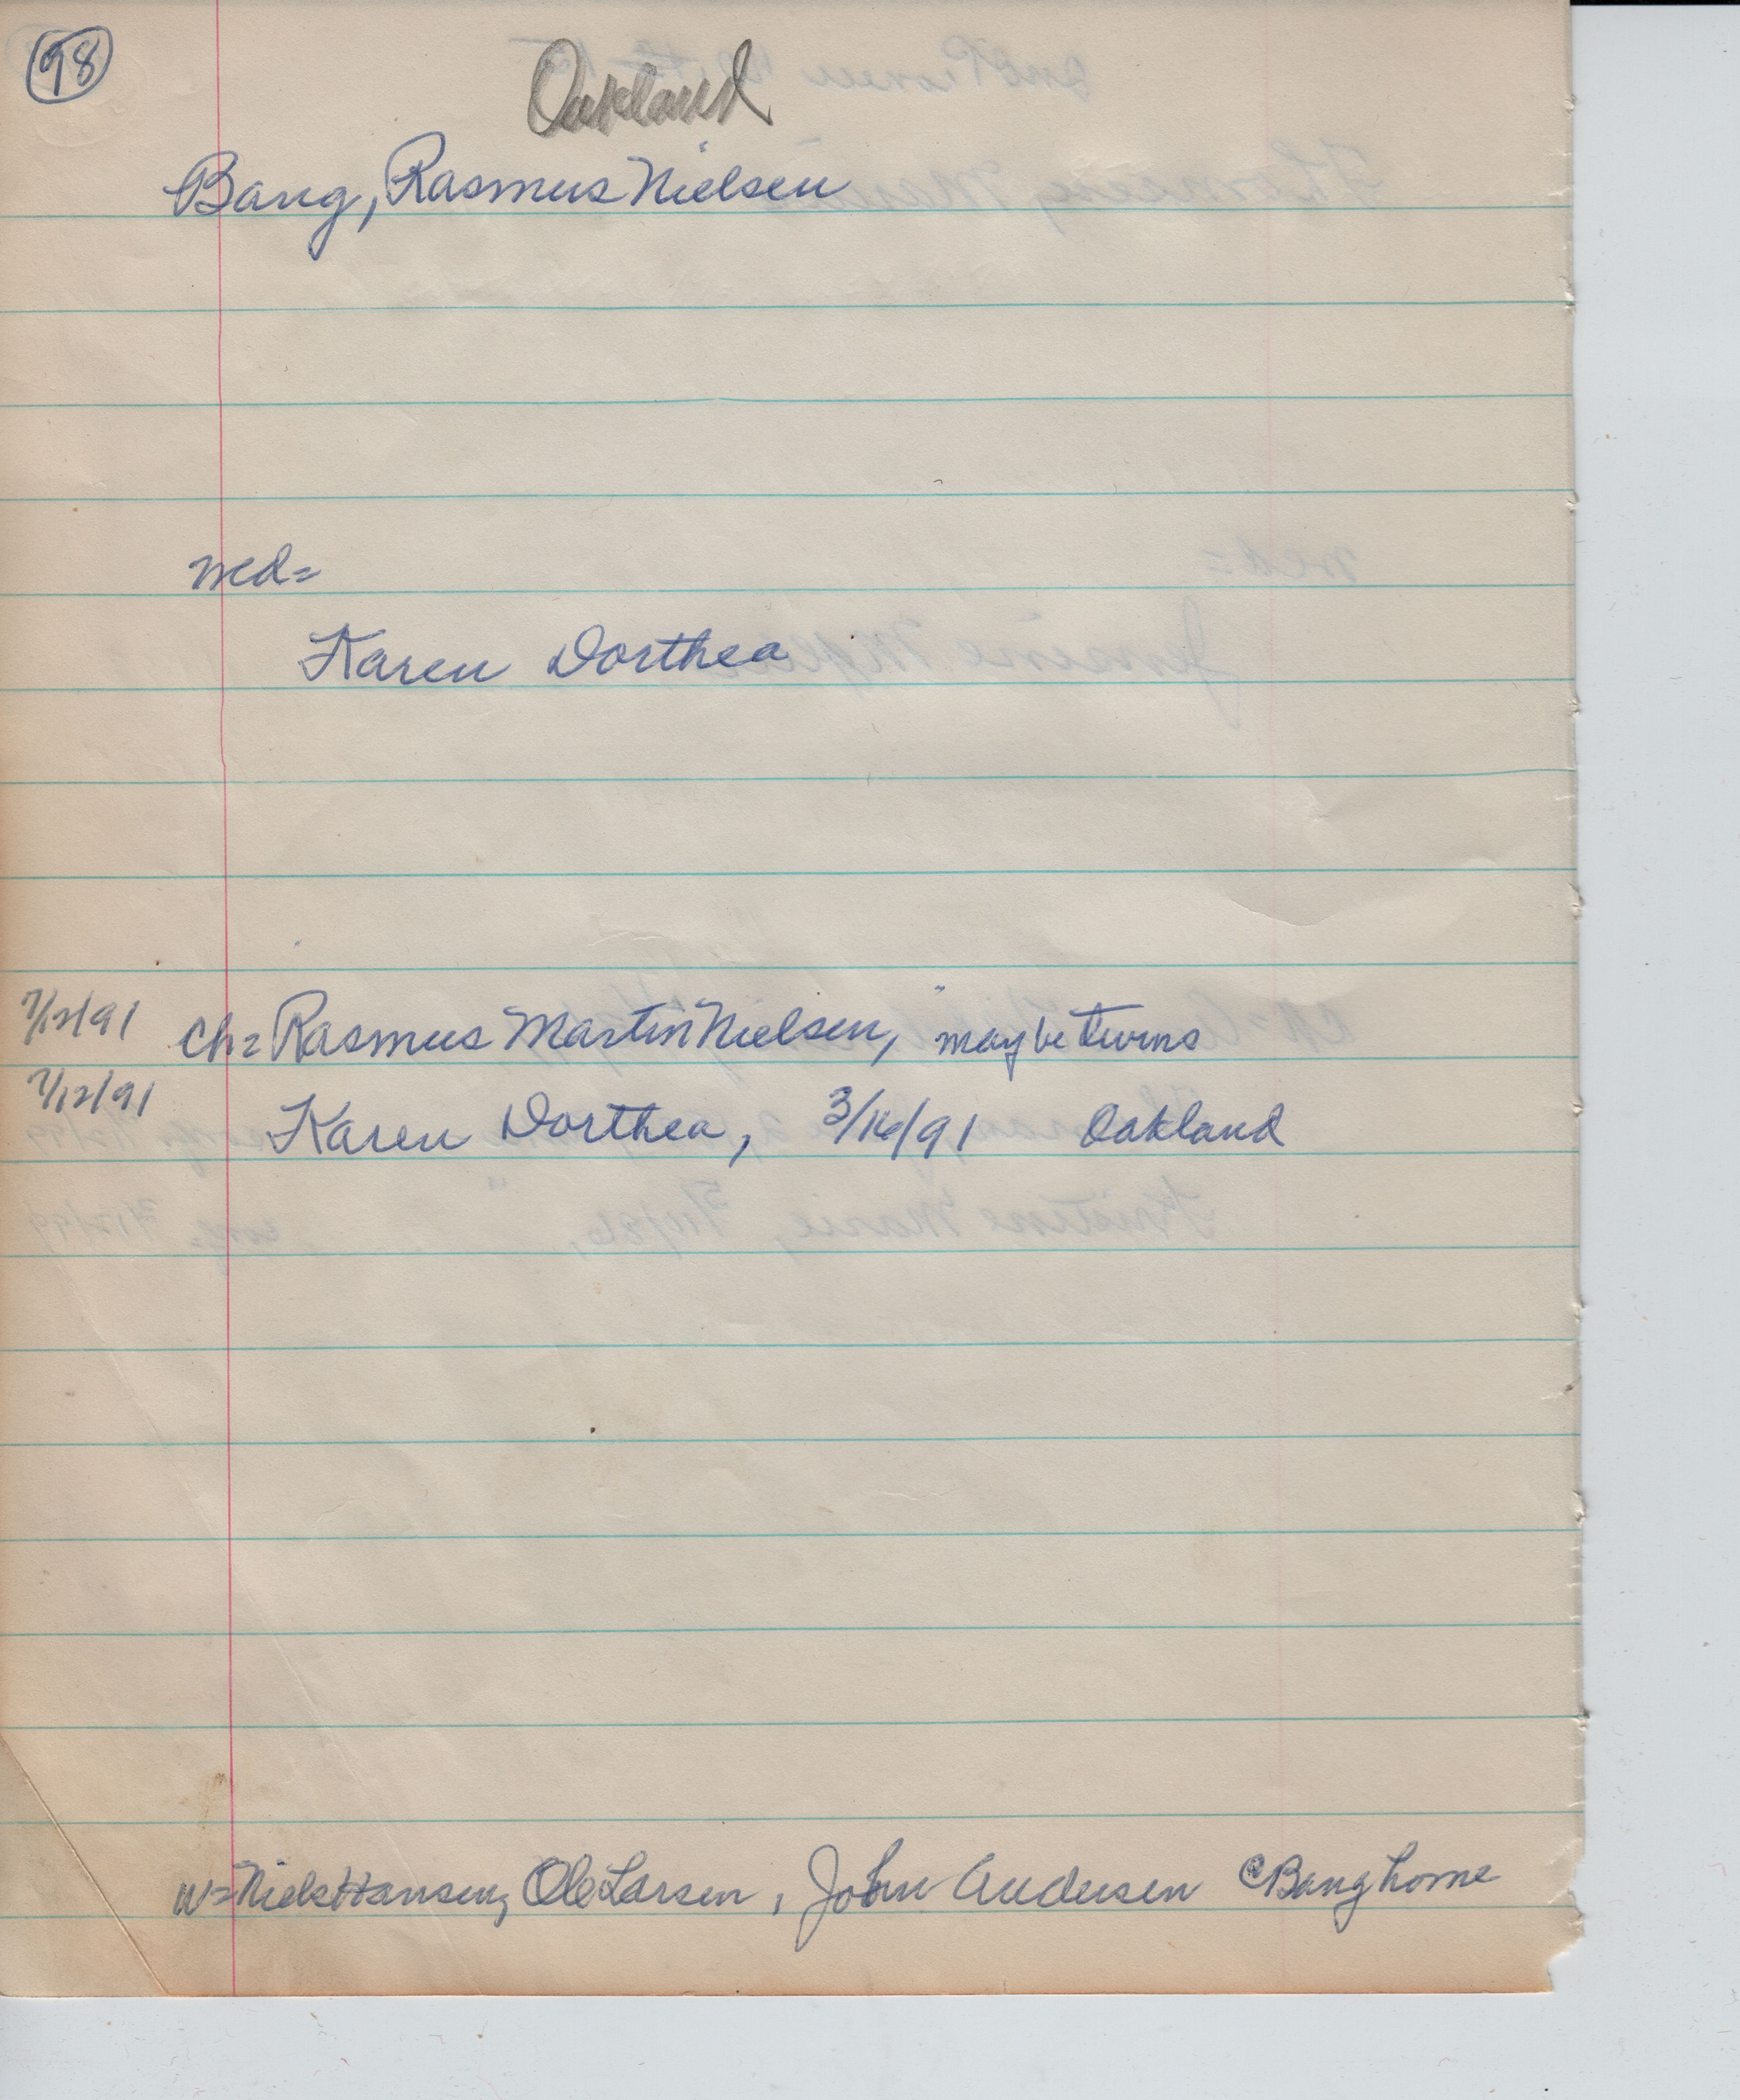 98
Oakland
Bang, Rasmus Nielsen
wed=
Karen Dorthea
7/12/91 ch= Rasmus Martin Nielsen, " maybe twins
7/12/91 Karen Dorthea, 3/16/91 Oakland
w= Niels Hansen, Ole Larsen, John Andersen @ Bang home